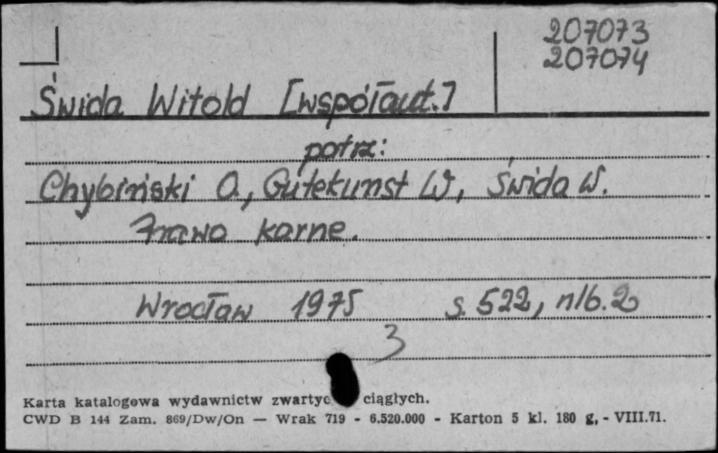 207073
207074
Świda Witold [współaut.]
patrz:
Chybiński O., Gutekunst W., Świda W.
Prawo karne.
Wrocław 1975 s. 522, nlb. 2
3
Karta katalogowa wydawnictw zwartyc ciągłych.
CWD B 144 Zam. 869/Dw/On — Wrak 719 - 6.520.000 - Karton 5 kl. 180 g. - VIII.71.